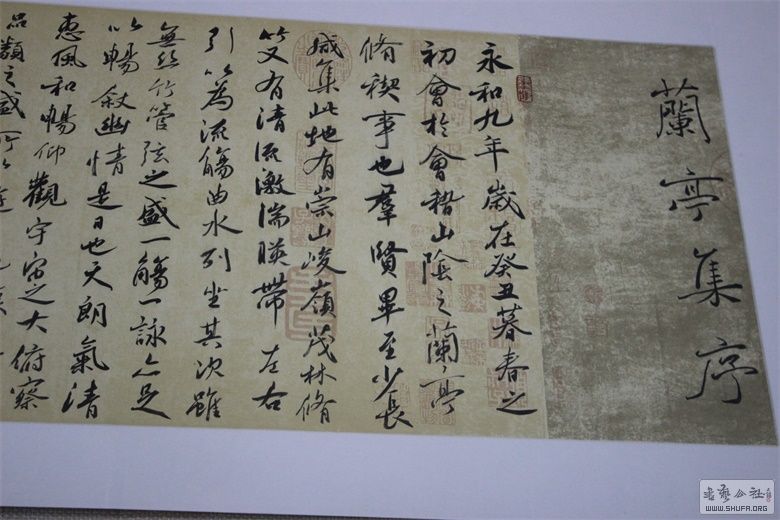 蘭亭集序
永和九年歲在癸丑暮春之
初會於會稽山陰之蘭亭
脩禊事也羣賢畢至少長
咸集此地有崇山峻嶺茂林脩
竹又有清流激湍暎帶左右
引以為流觴曲水列坐其次雖
無絲竹管弦之盛一觴一詠亦足
以暢敘幽情是日也天朗氣清
惠風和暢仰觀宇宙之大俯察
品類之盛所以遊
书艺公社
WWW.SHUFA.ORG